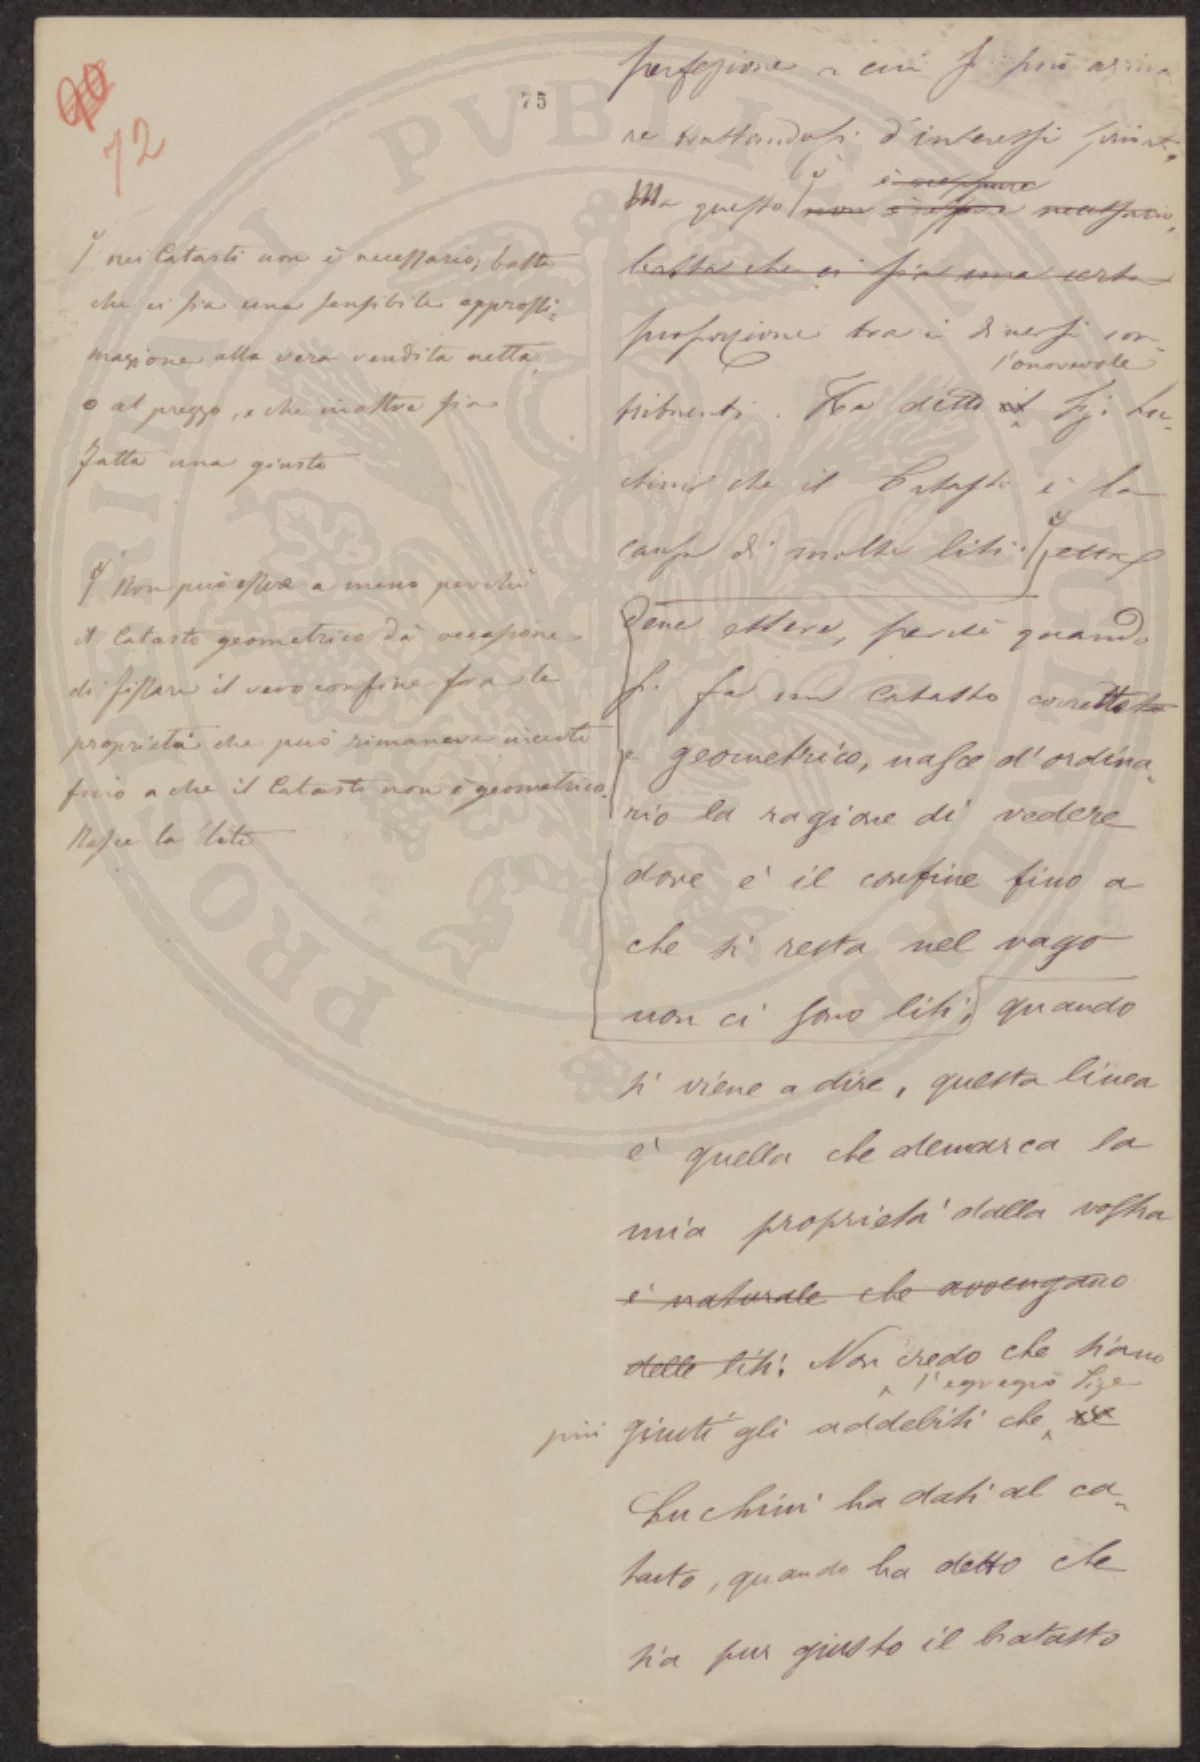 90
72
75
perfezione a cui si può arriva
re trattandosi d'interessi privati,
è neppure
Ma questo non è neppure necessario,
basta che ci sia una certa
proporzione tra i diversi con-
l'onorevole
tribuenti. Ha detto il Sig: Lu-
chini che il Catasto è la
causa di molte liti.
deve essere, perchè quando
si fa un catasto corretto
e geometrico, nasce d'ordina-
rio la ragione di vedere
dove è il confine fino a
che si resta nel vago
non ci sono liti, quando
si viene a dire, questa linea
è quella che demarca la
mia proprietà dalla vostra
è naturale che avvengano
delle liti. Non credo che siano
l'egregio Sige
più giusti gli addebiti che
Luchini ha dati al ca-
tasto, quando ha detto che
sia pur giusto il catasto
nei Catasti non è necessario, basta
che ci sia una sensibile approssi-
mazione alla vera rendita netta,
o al prezzo, e che inoltre sia
fatta una giusta
Non può essere a meno perchè
il Catasto geometrico dà occasione
di fissare il vero confine fra le
proprietà che può rimanere incerto
fino a che il Catasto non è geometrico.
Nasce la lite
PROPRIETÀ PUBBLICA